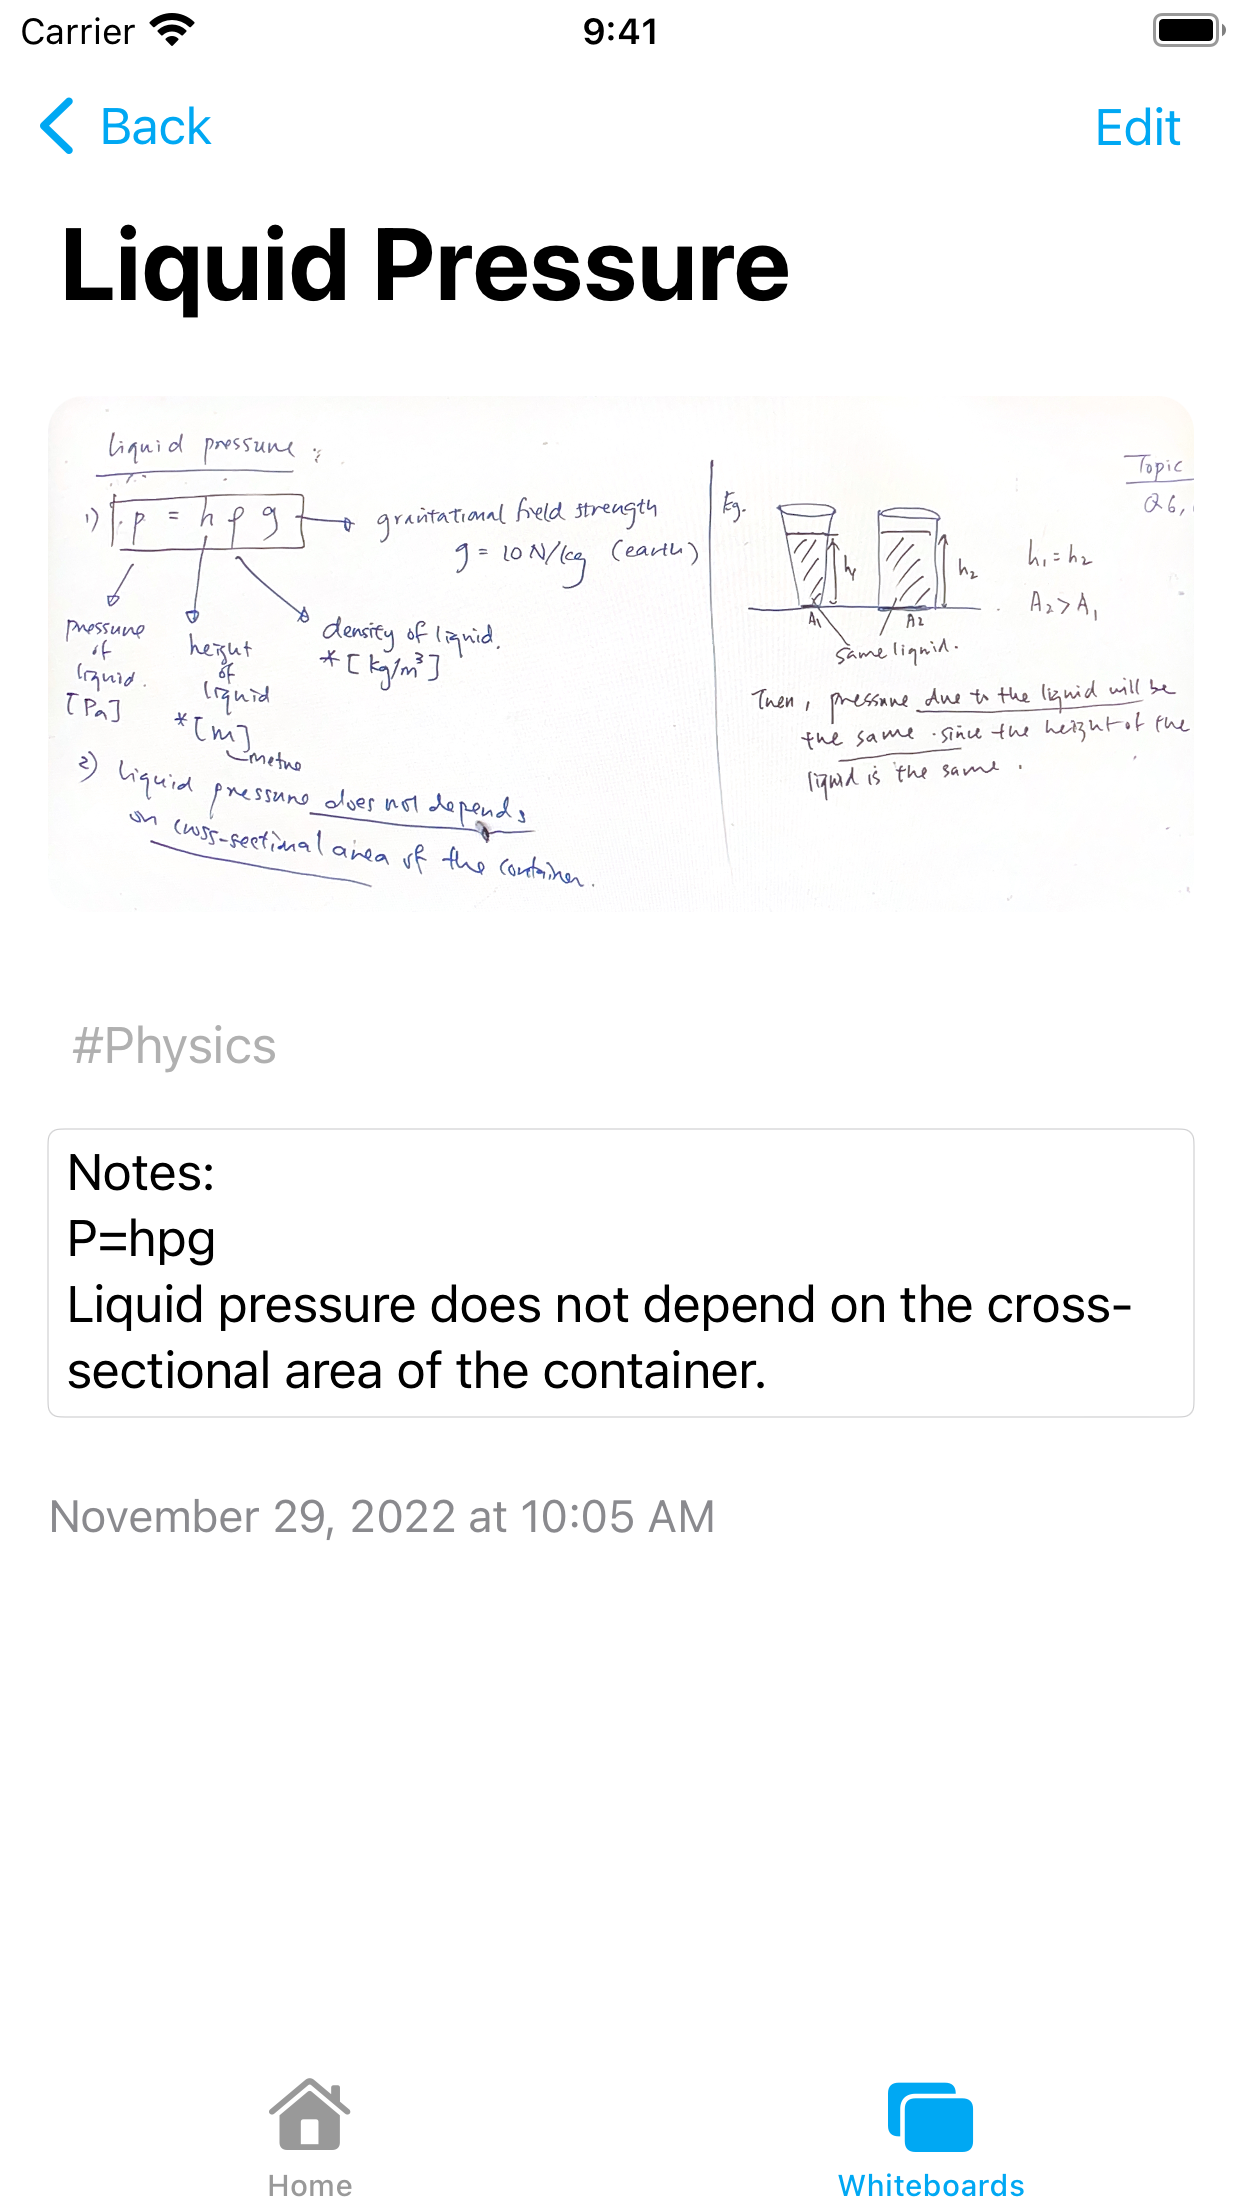 Carrier 9:41
Back Edit
Liquid Pressure
liquid pressure :
1) p = h ρ g
gravitational field strength
g = 10 N/kg (earth)
pressure
of
liquid.
[Pa]
height
of
liquid
*[m]
metre
density of liquid.
*[kg/m³]
2) liquid pressure does not depends
on cross-sectional area of the container.
Eg.
h₁
h₂
A₁ A₂
same liquid.
h₁ = h₂
A₂ > A₁
Then, pressure due to the liquid will be
the same. since the height of the
liquid is the same.
Topic
Q6,
#Physics
Notes:
P=hpg
Liquid pressure does not depend on the cross-
sectional area of the container.
November 29, 2022 at 10:05 AM
Home Whiteboards